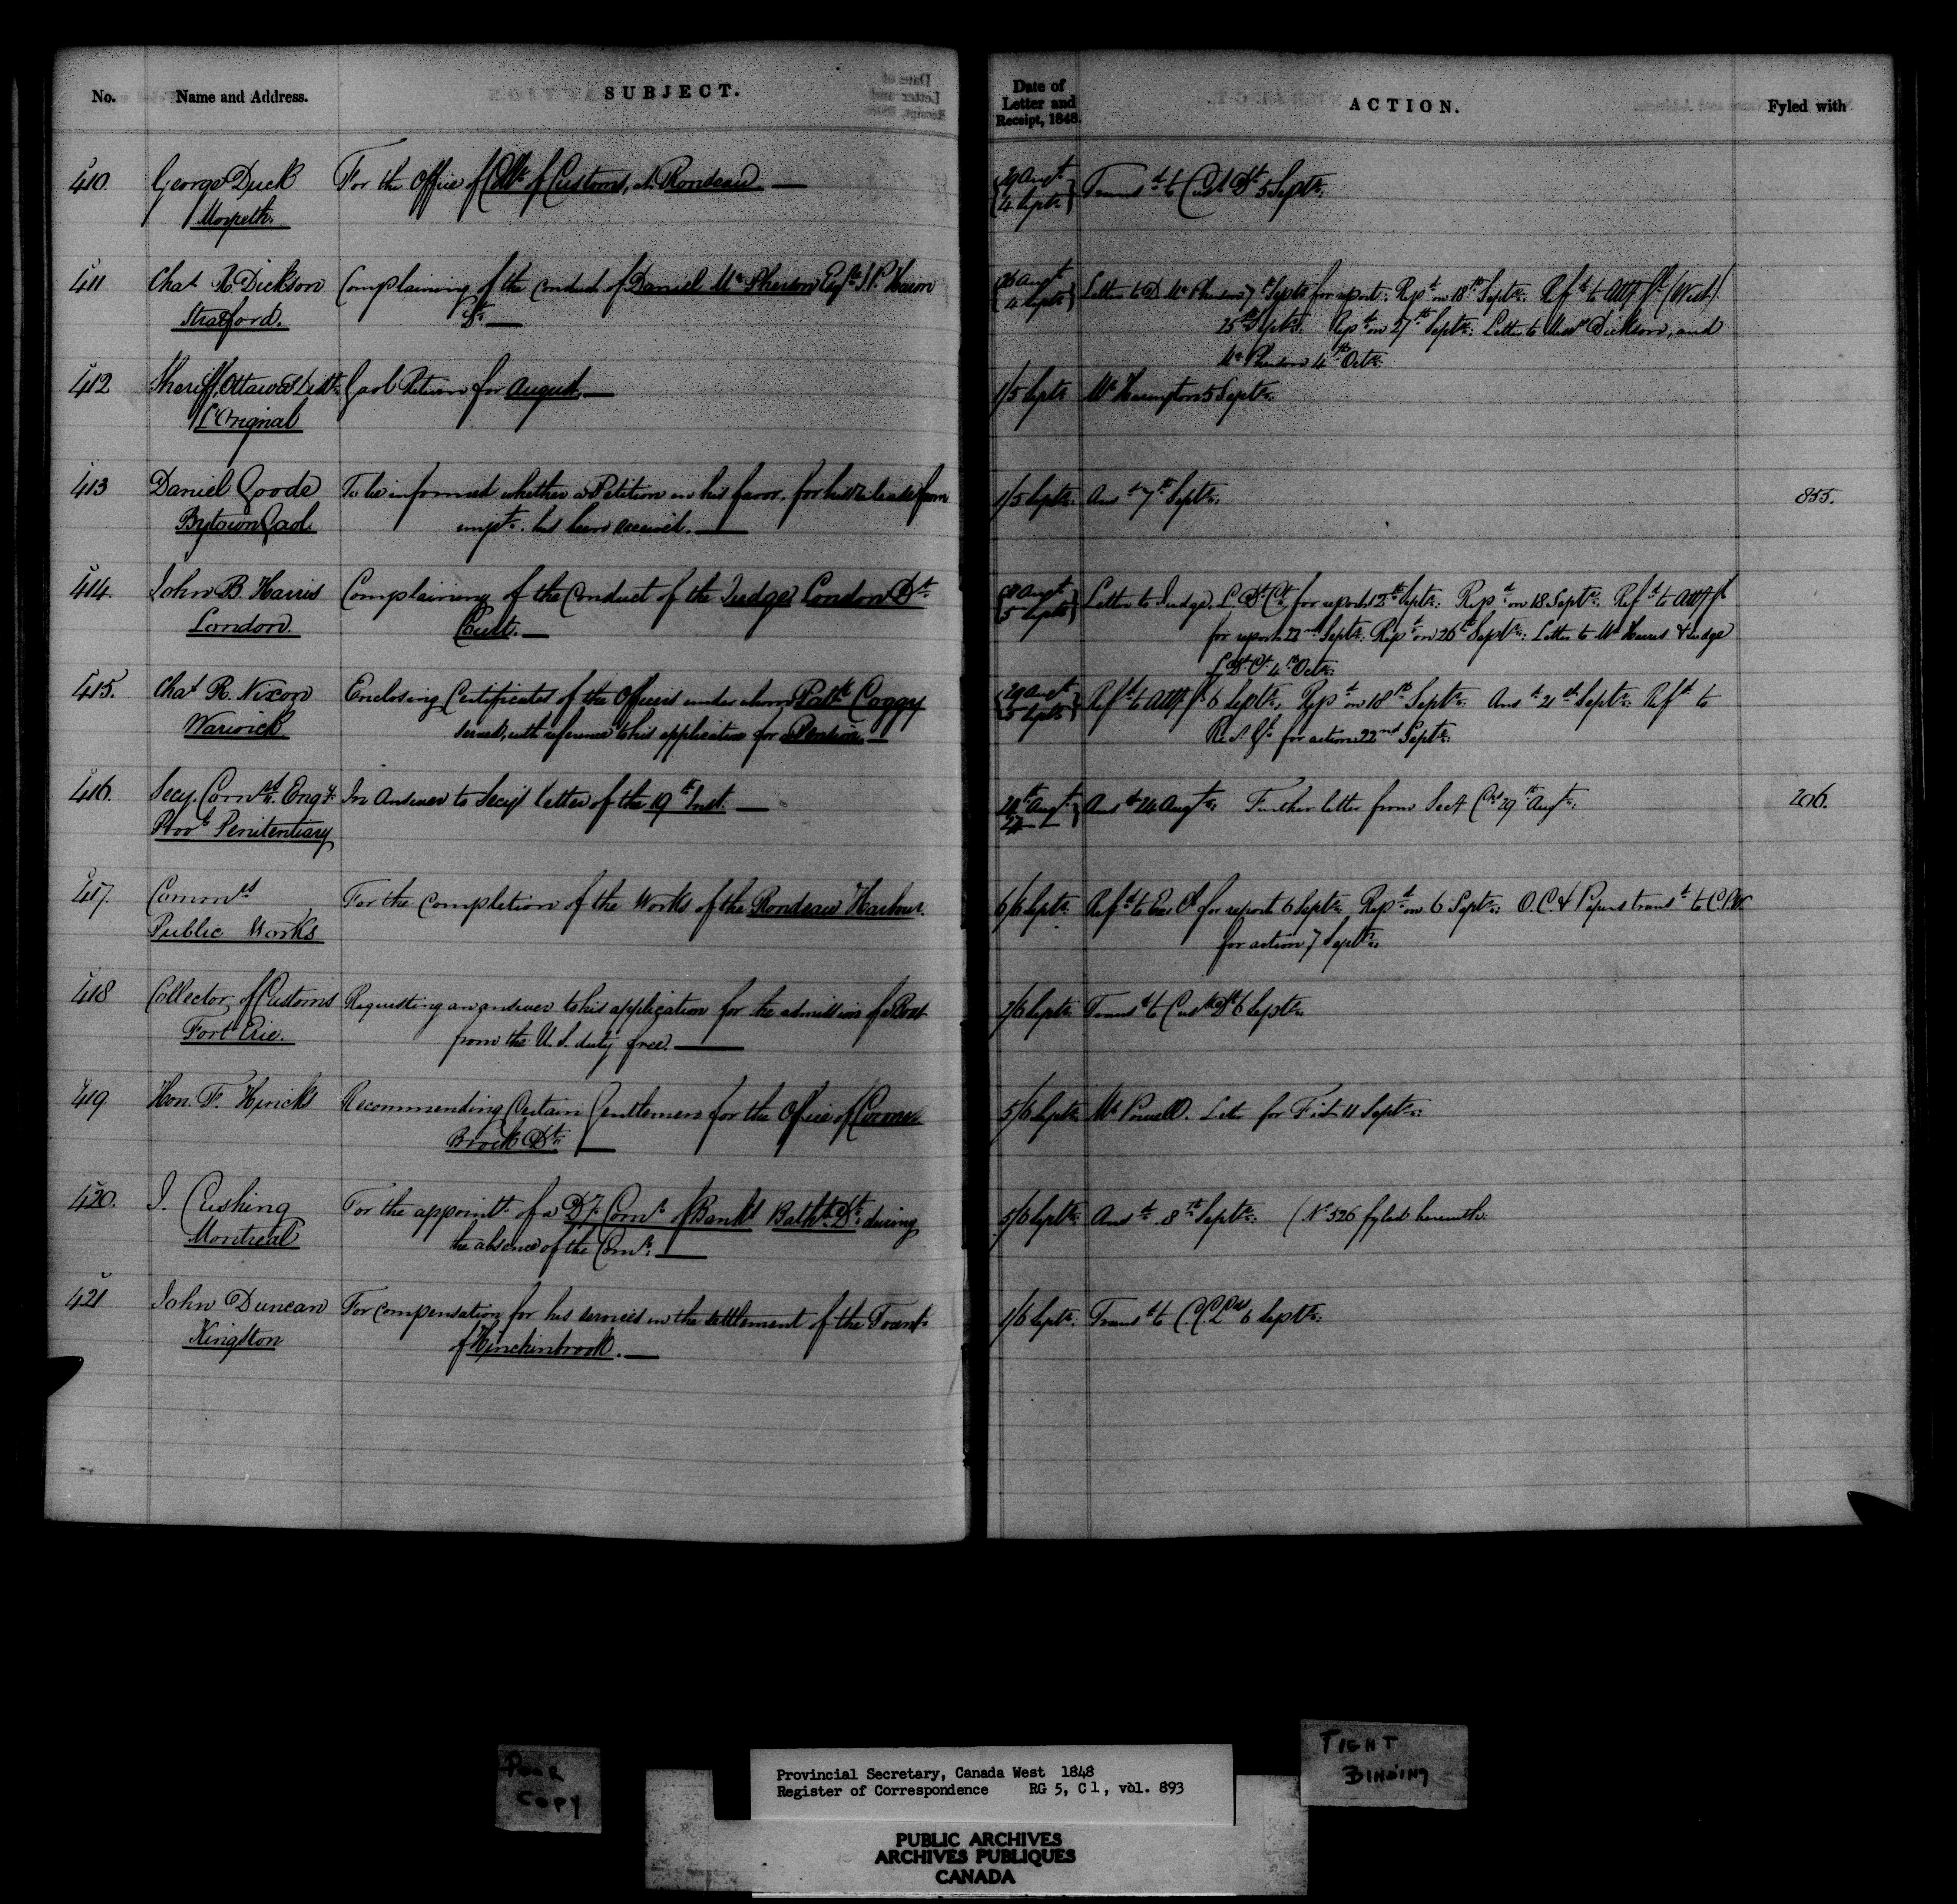 No. Name and Address. SUBJECT.
Date of Letter and Receipt, 1848. ACTION. Fyled with
410. George Duck For the Office of Collr of Customs, at Rondeau
Morpeth.
29 Augt 4 Septr Transd to Custs Dt 5 Septr.
411 Chas R. Dickson Complaining of the conduct of Daniel McPherson Esqre J.P. Huron
Stratford. Dt.
26 Augt 4 Septr Letter to D. McPherson 7th Septr for report. Repd on 18th Septr. Refd to Atty Gl (West)
25th Septr. Repd on 27th Septr. Letter to Messrs Dickson, and
McPherson 4th Octr.
412 Sheriff, Ottawa Distt. Gaol Return for August.
L'Orignal
1/5 Septr Mr Harington 5 Septr.
413 Daniel Goode To be informed whether a Petition in his favor, for his release from
Bytown Gaol. impt. has been received.
1/5 Septr. Ansd 7th Septr. 855.
414. John B. Harris Complaining of the Conduct of the Judge London Dt
London. Court.
Augt 5 Septr Letter to Judge, L. Dt Ct. for report 12th Septr. Repd on 18 Septr. Refd to Atty Gl
for report 22nd Septr. Repd on 26th Septr. Letter to Mr Harris & Judge
L. Dt Ct. 4th Octr.
415. Chas R. Nixon Enclosing Certificates of the Officers under whom Patk Coggy
Warwick served, with reference to his application for a Pension
29 Augt 5 Septr Refd to Atty Gl 6 Septr. Repd on 18th Septr. Ansd 21st Septr. Refd to
for action 22nd Septr.
416. Secy. Comrs Enqy. In Answer to Secy's letter of the 19th Inst.
Provl Penitentiary
Augt Ansd 24 Augt. Further letter from Secy 29th Augt. 206.
417. Commrs For the completion of the Works of the Rondeau Harbour.
Public Works
6/6 Septr Refd to Exe. Cl for report 6 Septr. Repd on 6 Septr. O.C. & Papers transd to C.P.W.
for action 7 Septr.
418 Collector of Customs Requesting an answer to his application for the admission of a Boat
Fort Erie. from the U.S. duty free.
2/6 Septr Transd to Custs Dt 6 Septr.
419. Hon. F. Hincks Recommending Certain Gentlemen for the Office of Coroner
Brock Dt.
5/6 Septr Mr Powell. Letter for Fiat 11 Septr.
420. J. Cushing For the appointt. of a Dy Comr of Bankt Batht. Dt. during
Montreal the absence of the Comr.
5/6 Septr. Ansd 8th Septr. (No 526 fyled herewith.
421 John Duncan For compensation for his services in the settlement of the Townp
Kingston of Hinchinbrook.
1/6 Septr. Transd to C. C. L. 6 Septr.
POOR
COPY
Provincial Secretary, Canada West 1848
Register of Correspondence RG 5, C 1, vol. 893
TIGHT
BINDING
PUBLIC ARCHIVES
ARCHIVES PUBLIQUES
CANADA